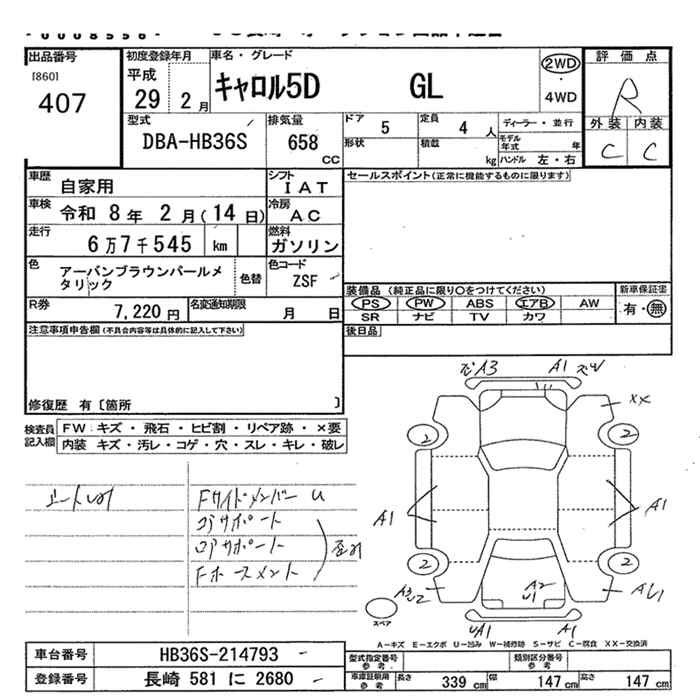 出品番号
[860]
407
初度登録年月
平成
29 2月
車名・グレード
キャロル5D GL
2WD
・
4WD
評価点
R
外装 内装
C C
型式
DBA-HB36S
排気量
658
CC
ドア
5
定員
4人
ディーラー・並行
形状
積載
kg
モデル
年式
年
ハンドル 左・右
車歴
自家用
シフト
IAT
セールスポイント(正常に機能するものに限ります)
車検
令和 8年 2月(14日)
冷房
AC
走行
6万7千545 km
燃料
ガソリン
色
アーバンブラウンパールメ
タリック
色替
色コード
ZSF
装備品 (純正品に限り○をつけてください)
新車保証書
PS PW ABS エアB AW
有・無
SR ナビ TV カワ
R券
7,220円
名変通知期限
月 日
後日品
注意事項申告欄(不具合内容等は具体的に記入して下さい)
修復歴 有〔箇所 〕
検査員
記入欄
FW: キズ・飛石・ヒビ割・リペア跡・×要
内装 キズ・汚レ・コゲ・穴・スレ・キレ・破レ
FサイドメンバーU
コアサポート
ロアサポート
A3 A1
XX
2 2
A1 A1
2 2
A2
U1
UA1 A1
スペア
A-キズ E-エクボ U-凹み W-補修跡 S-サビ C-腐食 XX-交換済
車台番号
HB36S-214793
型式指定番号
参考
類別区分番号
参考
登録番号
長崎 581 に 2680
車庫証明用
参考
長さ
339 cm
幅
147 cm
高さ
147 cm